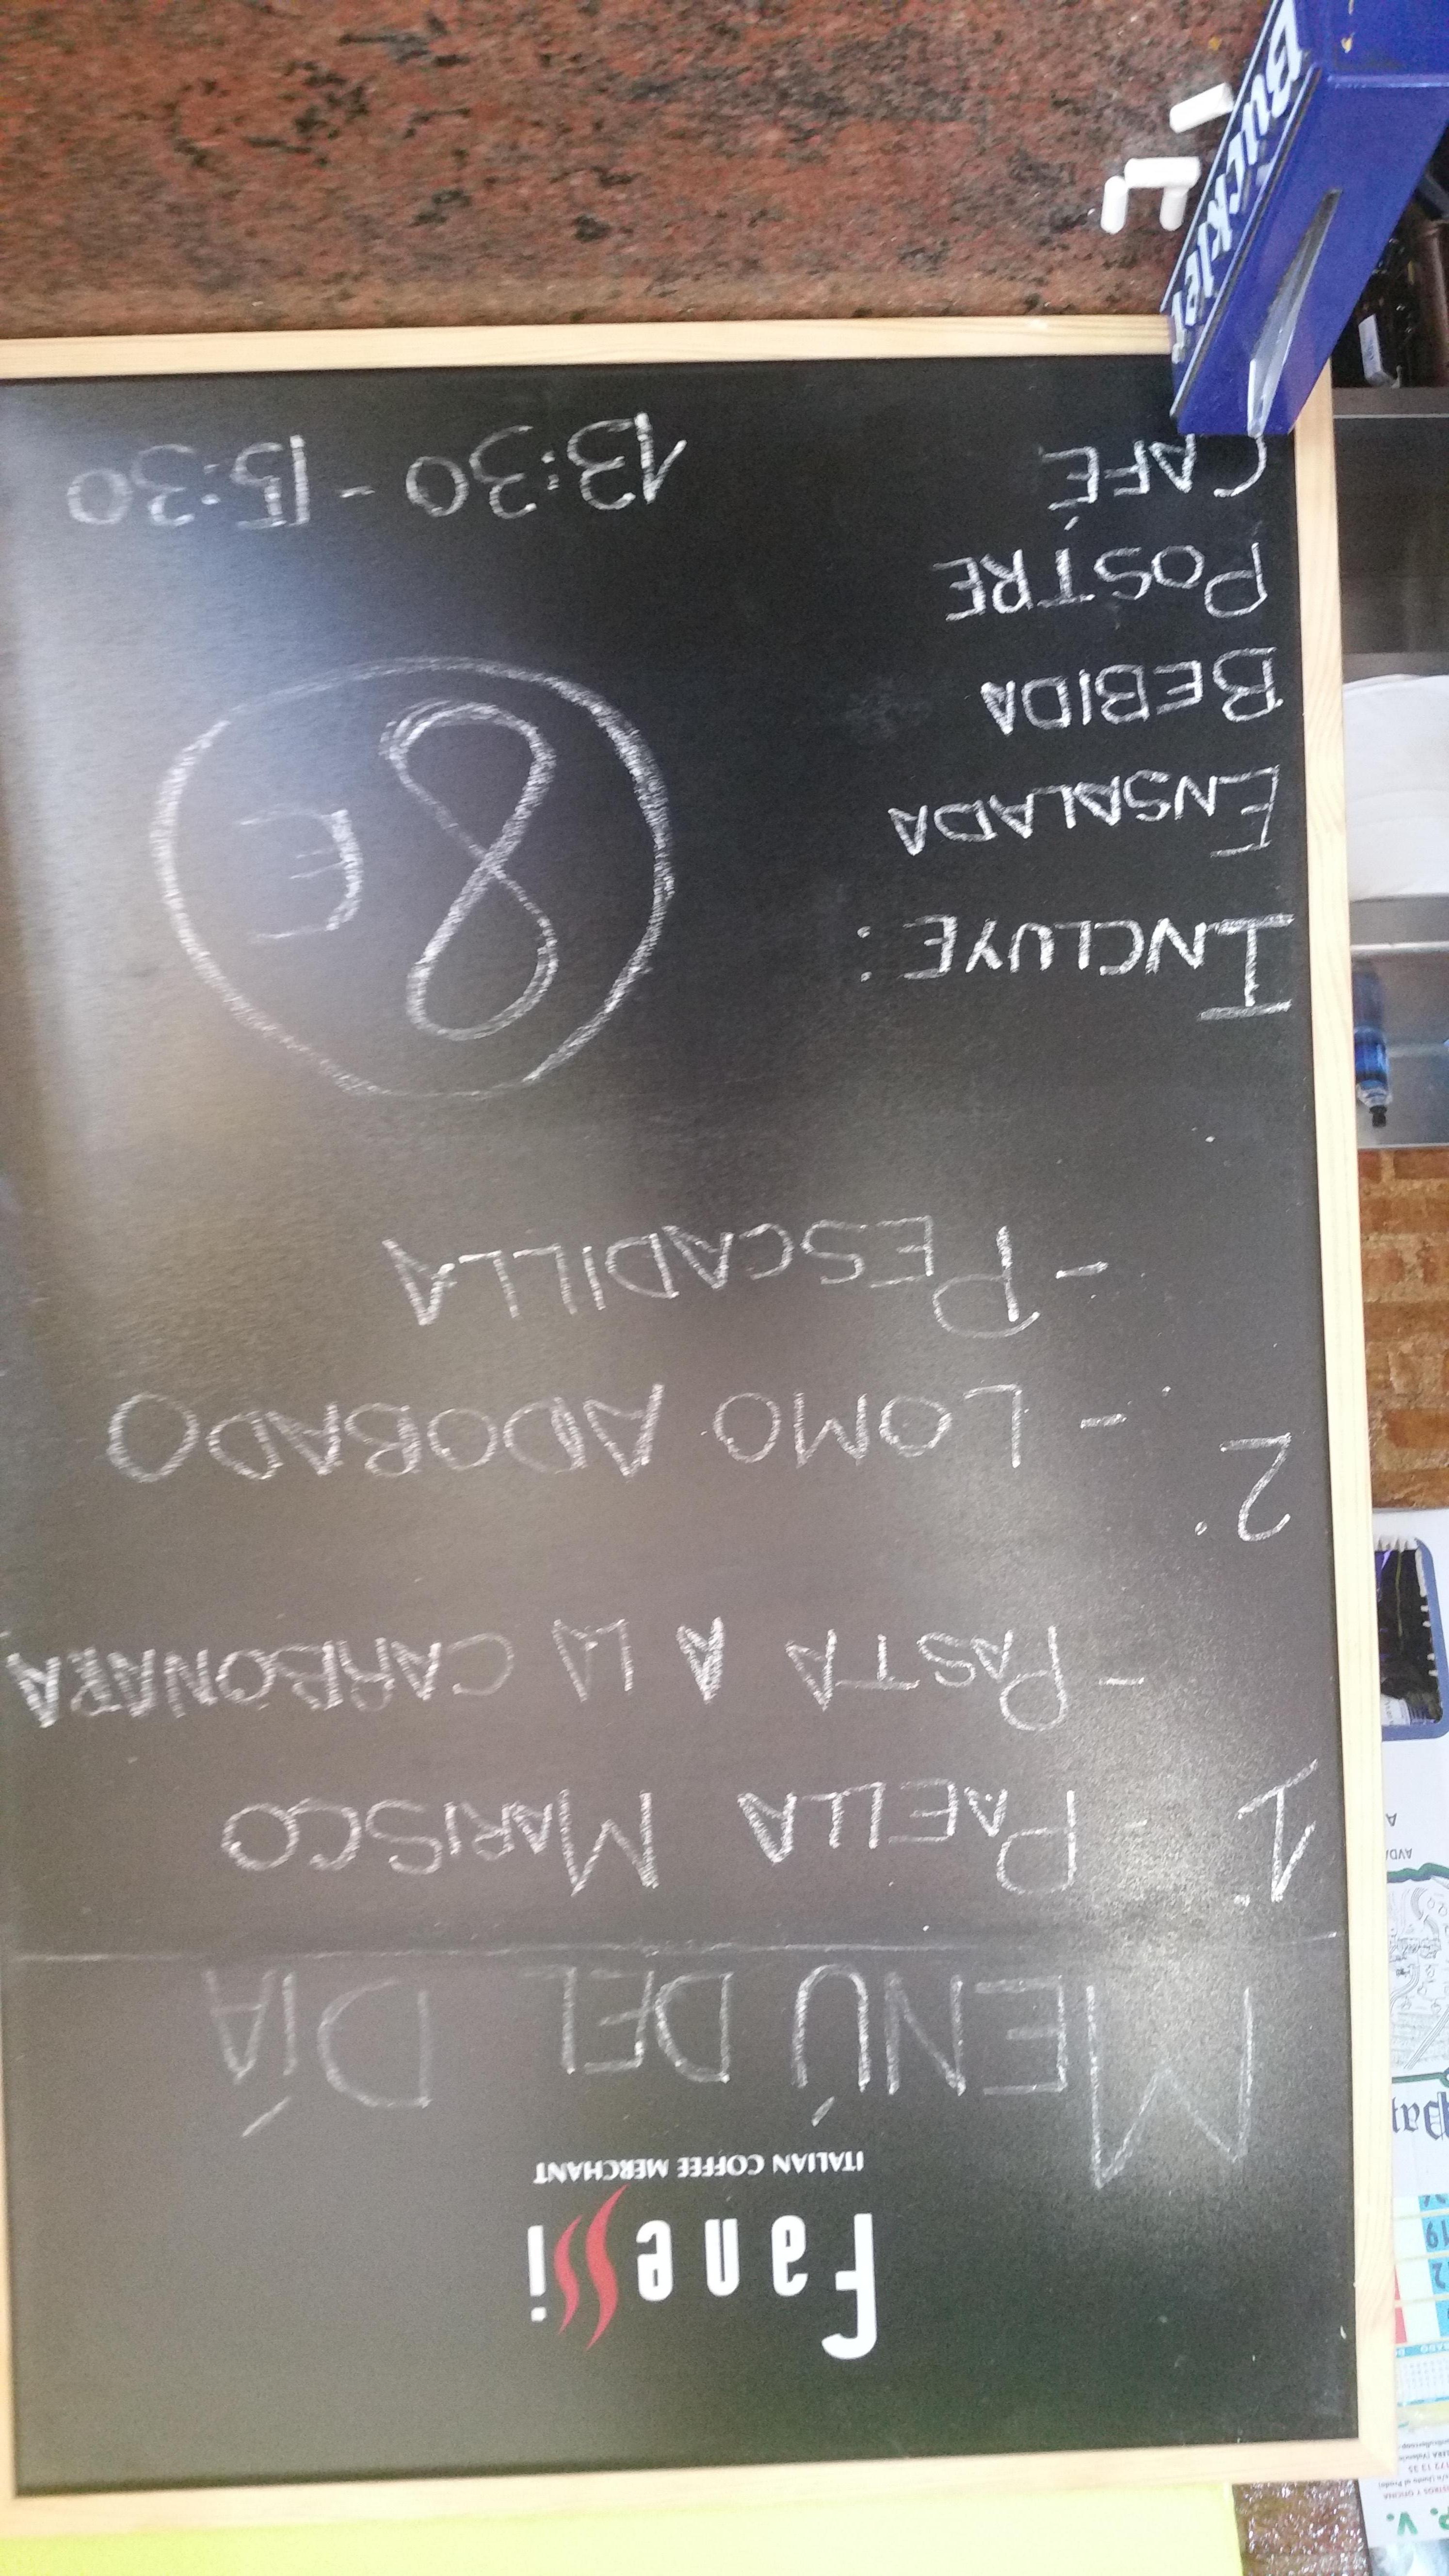 Fanessi
ITALIAN COFFEE MERCHANT
MENÚ DEL DÍA
1. - PAELLA MARISCO
- PASTA A LA CARBONARA
2. - LOMO ADOBADO
- PESCADILLA
INCLUYE:
ENSALADA
BEBIDA
POSTRE
CAFÉ
8 €
13:30 - 15:30
Buckler
P. V.
19
AVDA